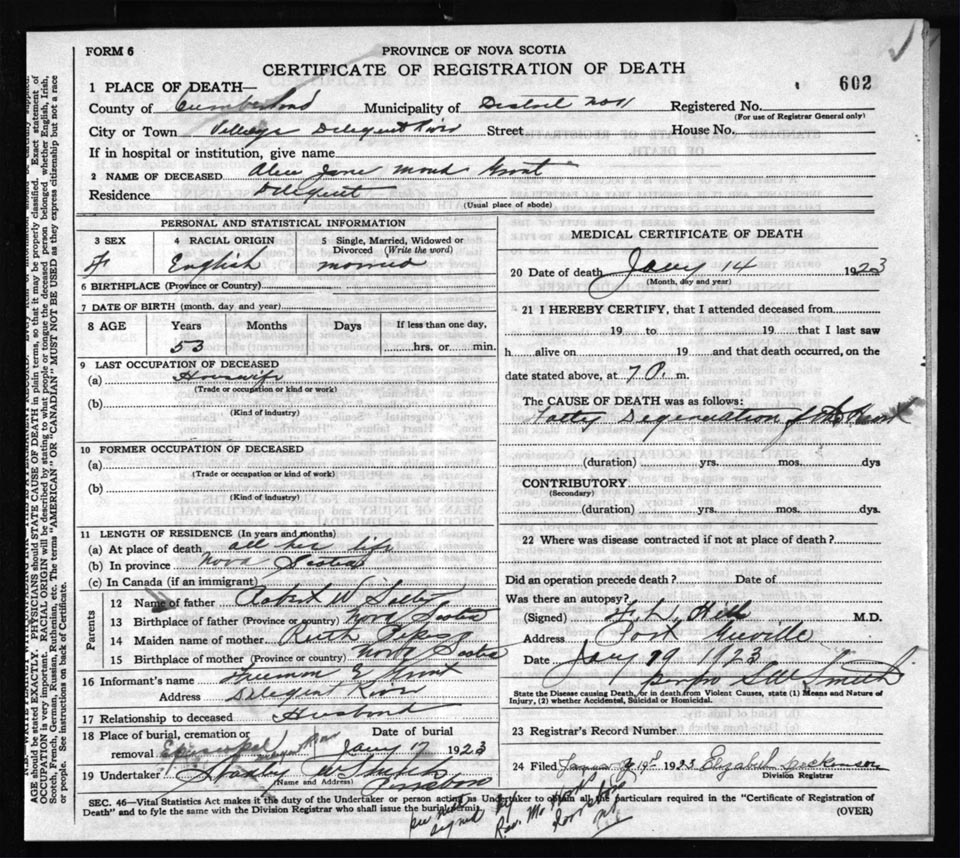 FORM 6
PROVINCE OF NOVA SCOTIA
CERTIFICATE OF REGISTRATION OF DEATH
602
1 PLACE OF DEATH—
County of Cumberland Municipality of District No 11 Registered No.
(For use of Registrar General only)
City or Town Village Diligent River Street House No.
If in hospital or institution, give name
2 NAME OF DECEASED Alice Jane Maud Grant
Residence Diligent
(Usual place of abode)
PERSONAL AND STATISTICAL INFORMATION
3 SEX 4 RACIAL ORIGIN 5 Single, Married, Widowed or Divorced (Write the word)
F English married
6 BIRTHPLACE (Province or Country)
7 DATE OF BIRTH (month, day and year)
8 AGE Years Months Days If less than one day,
53 hrs. or min.
9 LAST OCCUPATION OF DECEASED
(a) Housewife
(Trade or occupation or kind of work)
(b)
(Kind of industry)
10 FORMER OCCUPATION OF DECEASED
(a)
(Trade or occupation or kind of work)
(b)
(Kind of industry)
11 LENGTH OF RESIDENCE (In years and months)
(a) At place of death all her life
(b) In province Nova Scotia
(c) In Canada (if an immigrant)
Parents
12 Name of father Robert W
13 Birthplace of father (Province or country) Nova Scotia
14 Maiden name of mother Ruth
15 Birthplace of mother (Province or country) Nova Scotia
16 Informant's name Freeman E Grant
Address Diligent River
17 Relationship to deceased Husband
18 Place of burial, cremation or Date of burial
removal Episcopal Jany 17 1923
19 Undertaker Stanley W Smith
(Name and Address) Parrsboro
MEDICAL CERTIFICATE OF DEATH
20 Date of death Jany 14 1923
(Month, day and year)
21 I HEREBY CERTIFY, that I attended deceased from
19 to 19 that I last saw
h alive on 19 and that death occurred, on the
date stated above, at 7 P. m.
The CAUSE OF DEATH was as follows:
Fatty Degeneration of the Heart
(duration) yrs. mos. dys
CONTRIBUTORY
(Secondary)
(duration) yrs. mos. dys.
22 Where was disease contracted if not at place of death?
Did an operation precede death? Date of
Was there an autopsy?
(Signed) Hill M.D.
Address Port Greville
Date Jany 19 1923
Smith
State the Disease causing Death, or in death from Violent Causes, state (1) Means and Nature of
Injury, (2) whether Accidental, Suicidal or Homicidal.
23 Registrar's Record Number
24 Filed January 19th 1923 Elizabeth Dickenson
Division Registrar
SEC. 46—Vital Statistics Act makes it the duty of the Undertaker or Person acting as Undertaker to obtain all the particulars required in the "Certificate of Registration of
Death" and to fyle the same with the Division Registrar who shall issue the burial permit
(OVER)
signed by
Rev. Mr
Parrsboro
NS
AGE should be stated EXACTLY. PHYSICIANS should STATE CAUSE OF DEATH in plain terms, so that it may be properly classified. Exact statement of
OCCUPATION is very important. RACIAL ORIGIN will be described by stating to what people or tongue the deceased person belonged, whether English, Irish,
Scotch, French, German, Russian, Ruthenian, etc. The terms "AMERICAN" OR "CANADIAN" MUST NOT BE USED as they express citizenship but not a race
or people. See instructions on back of Certificate.